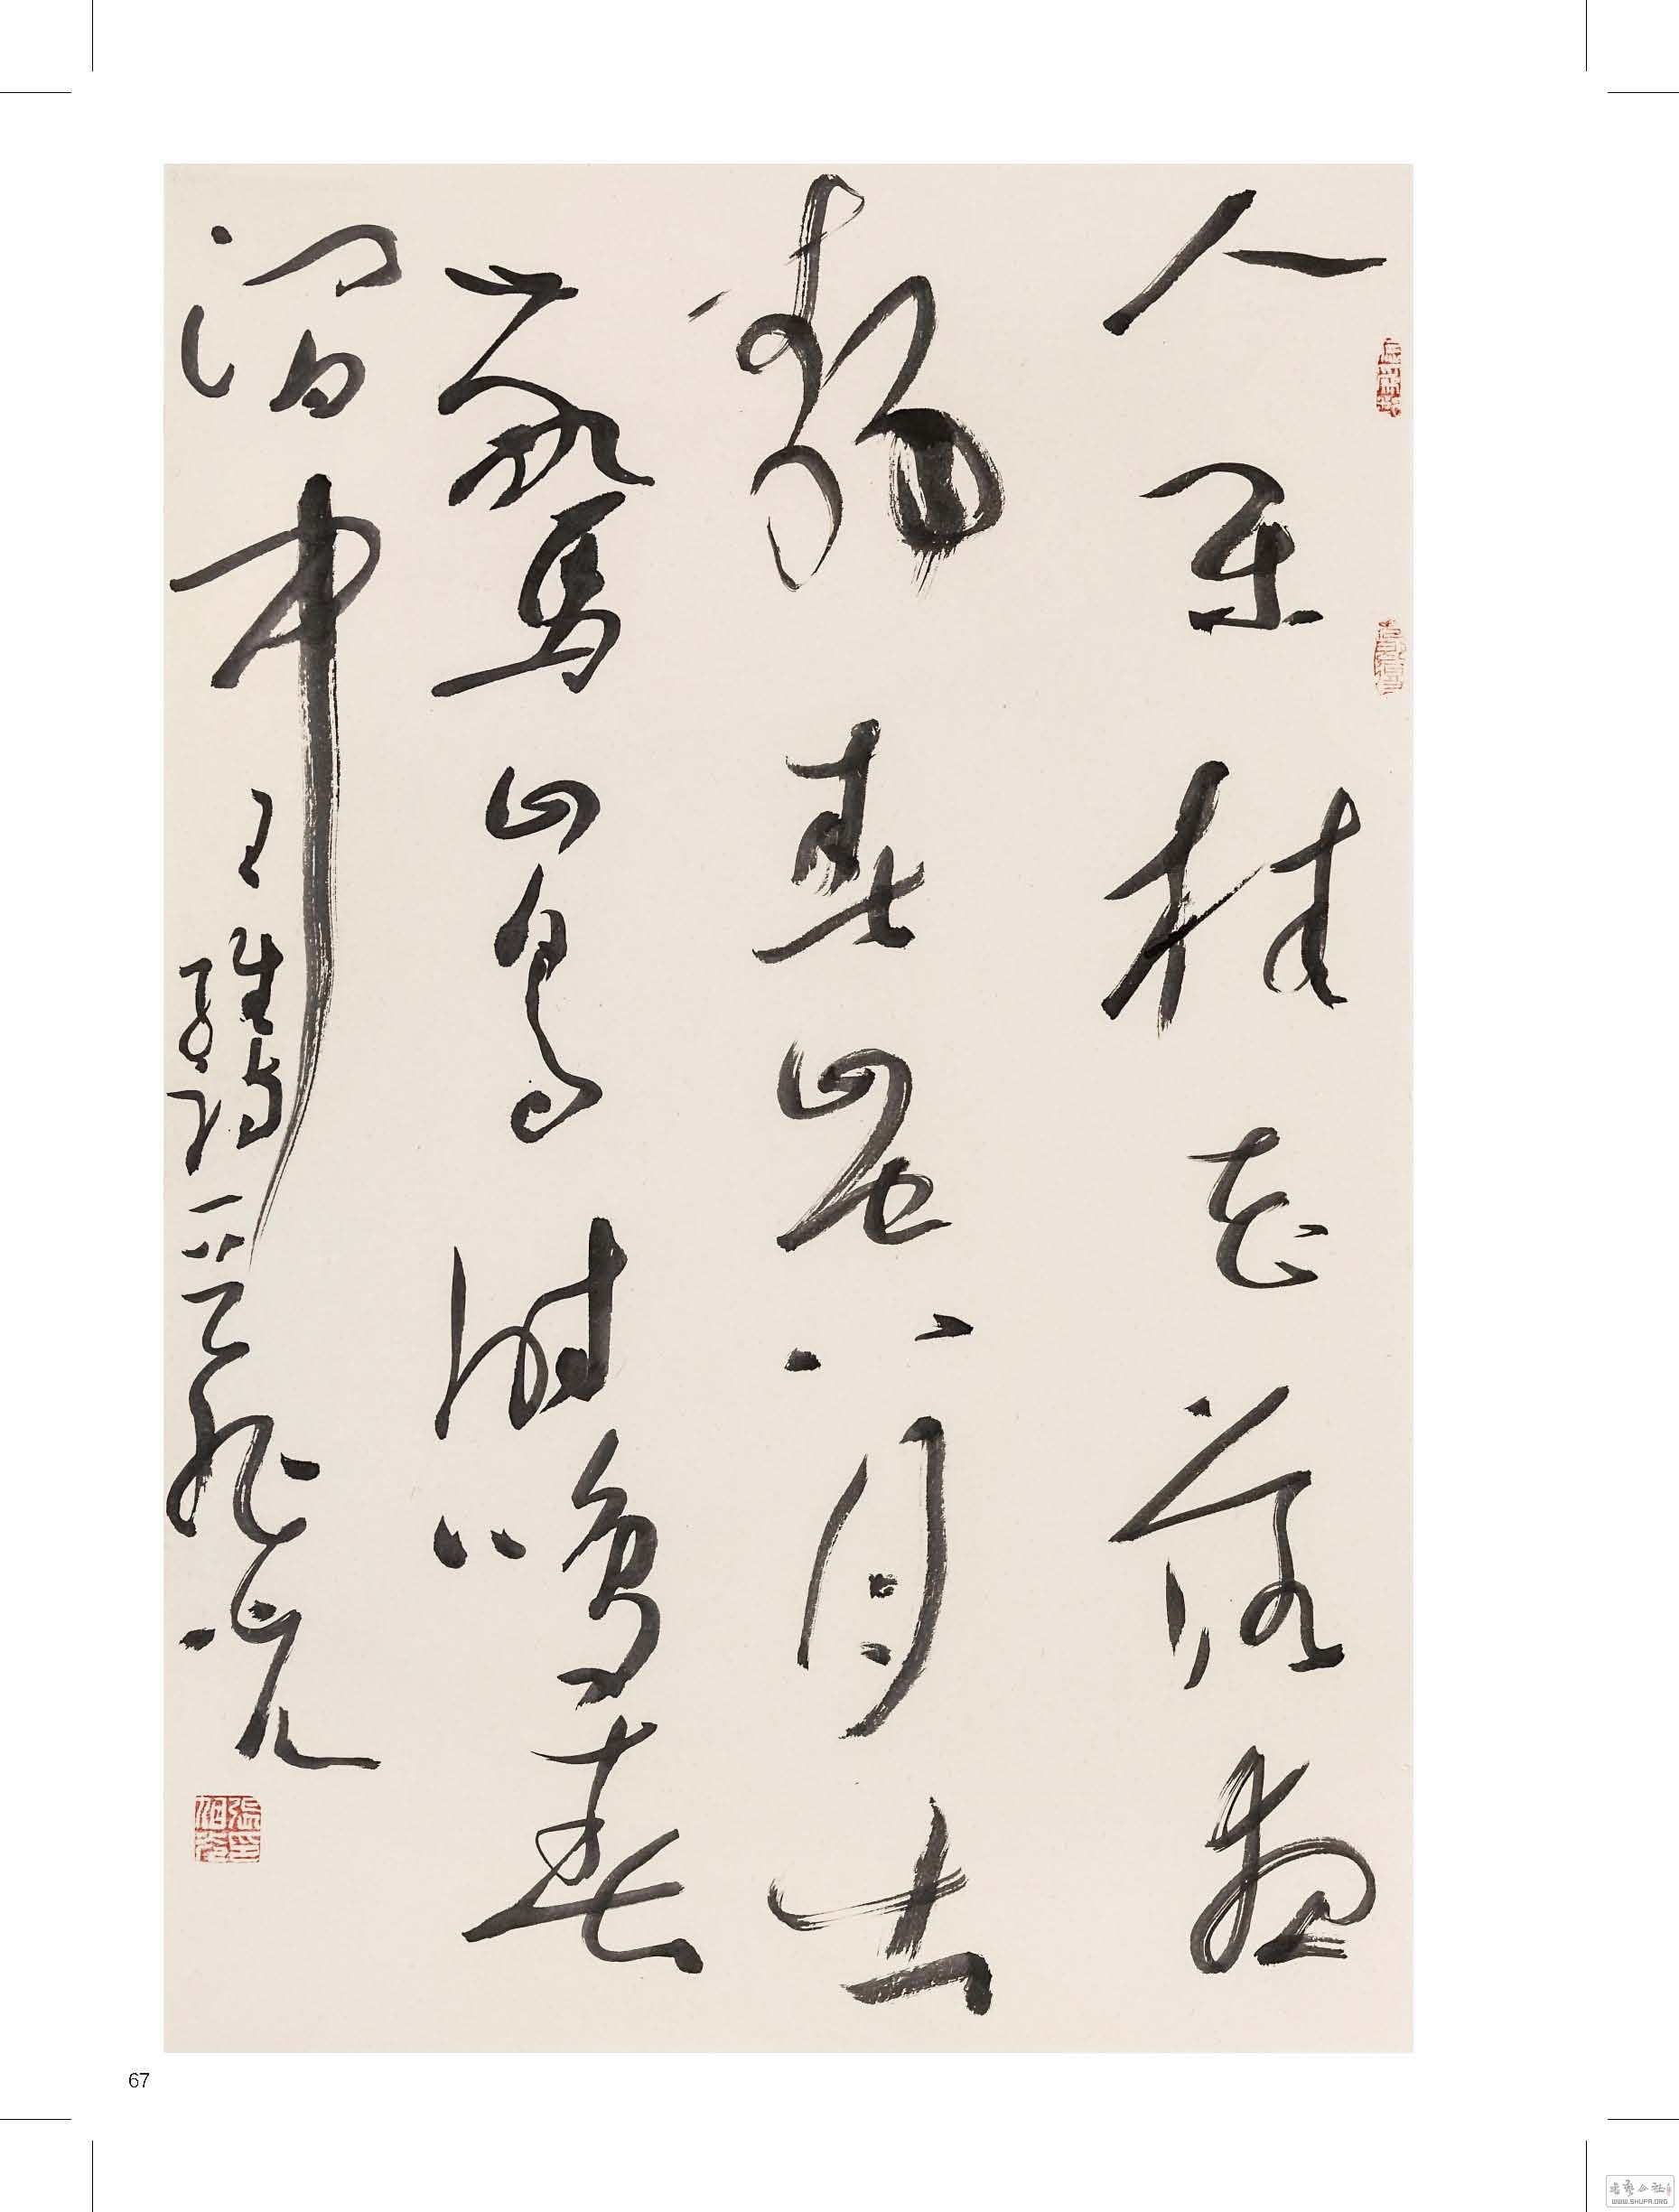 人閒桂花落夜
靜春山空月出
驚山鳥時鳴春
澗中
王維詩一首旭光
67
WWW.SHUFA.ORG